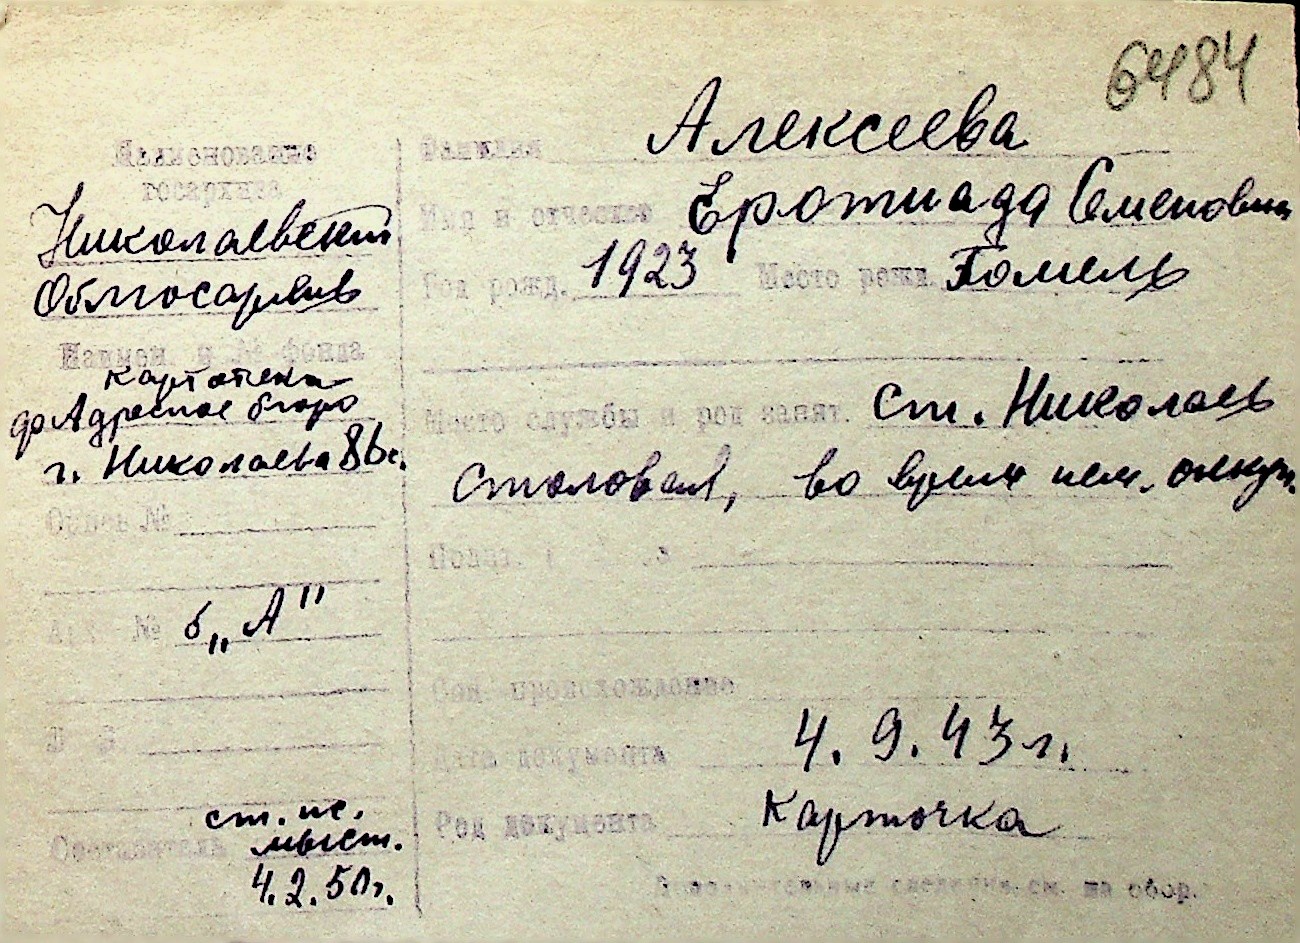 6484
Наименование
госархива
Николаевский
Облгосархив
Наимен. и № фонда
картотека
Адресное бюро
г. Николаева
Опись №
Арх. № б „А"
Составитель ст. ис.
4.2.50г.
Фамилия Алексеева
Имя и отчество Еротиада Семеновна
Год рожд. 1923 Место рожд. Гомель
Место службы и род занят. ст. Николаев
Столовая, во время нем. оккуп.
Соц. происхождение
Дата документа 4.9.43г.
Род документа Карточка
Дополнительные сведения см. на обор.